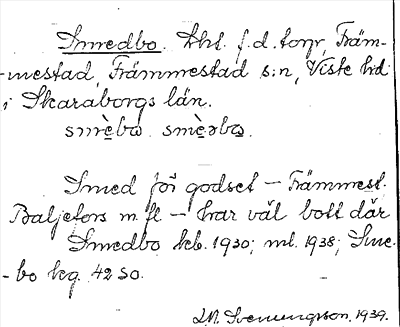 Smedbo. lht. f.d. torp, Främ-
-mestad, Främmestad s:n, Viste hd
i Skaraborgs län.
smèbω. smèəbω.
Smed för godset – Främmest.
Baljefors m.fl – har väl bott där
Smedbo kb. 1930; ml. 1938; Sme-
-bo kg. 42 SO.
Svenungsson, 1939.